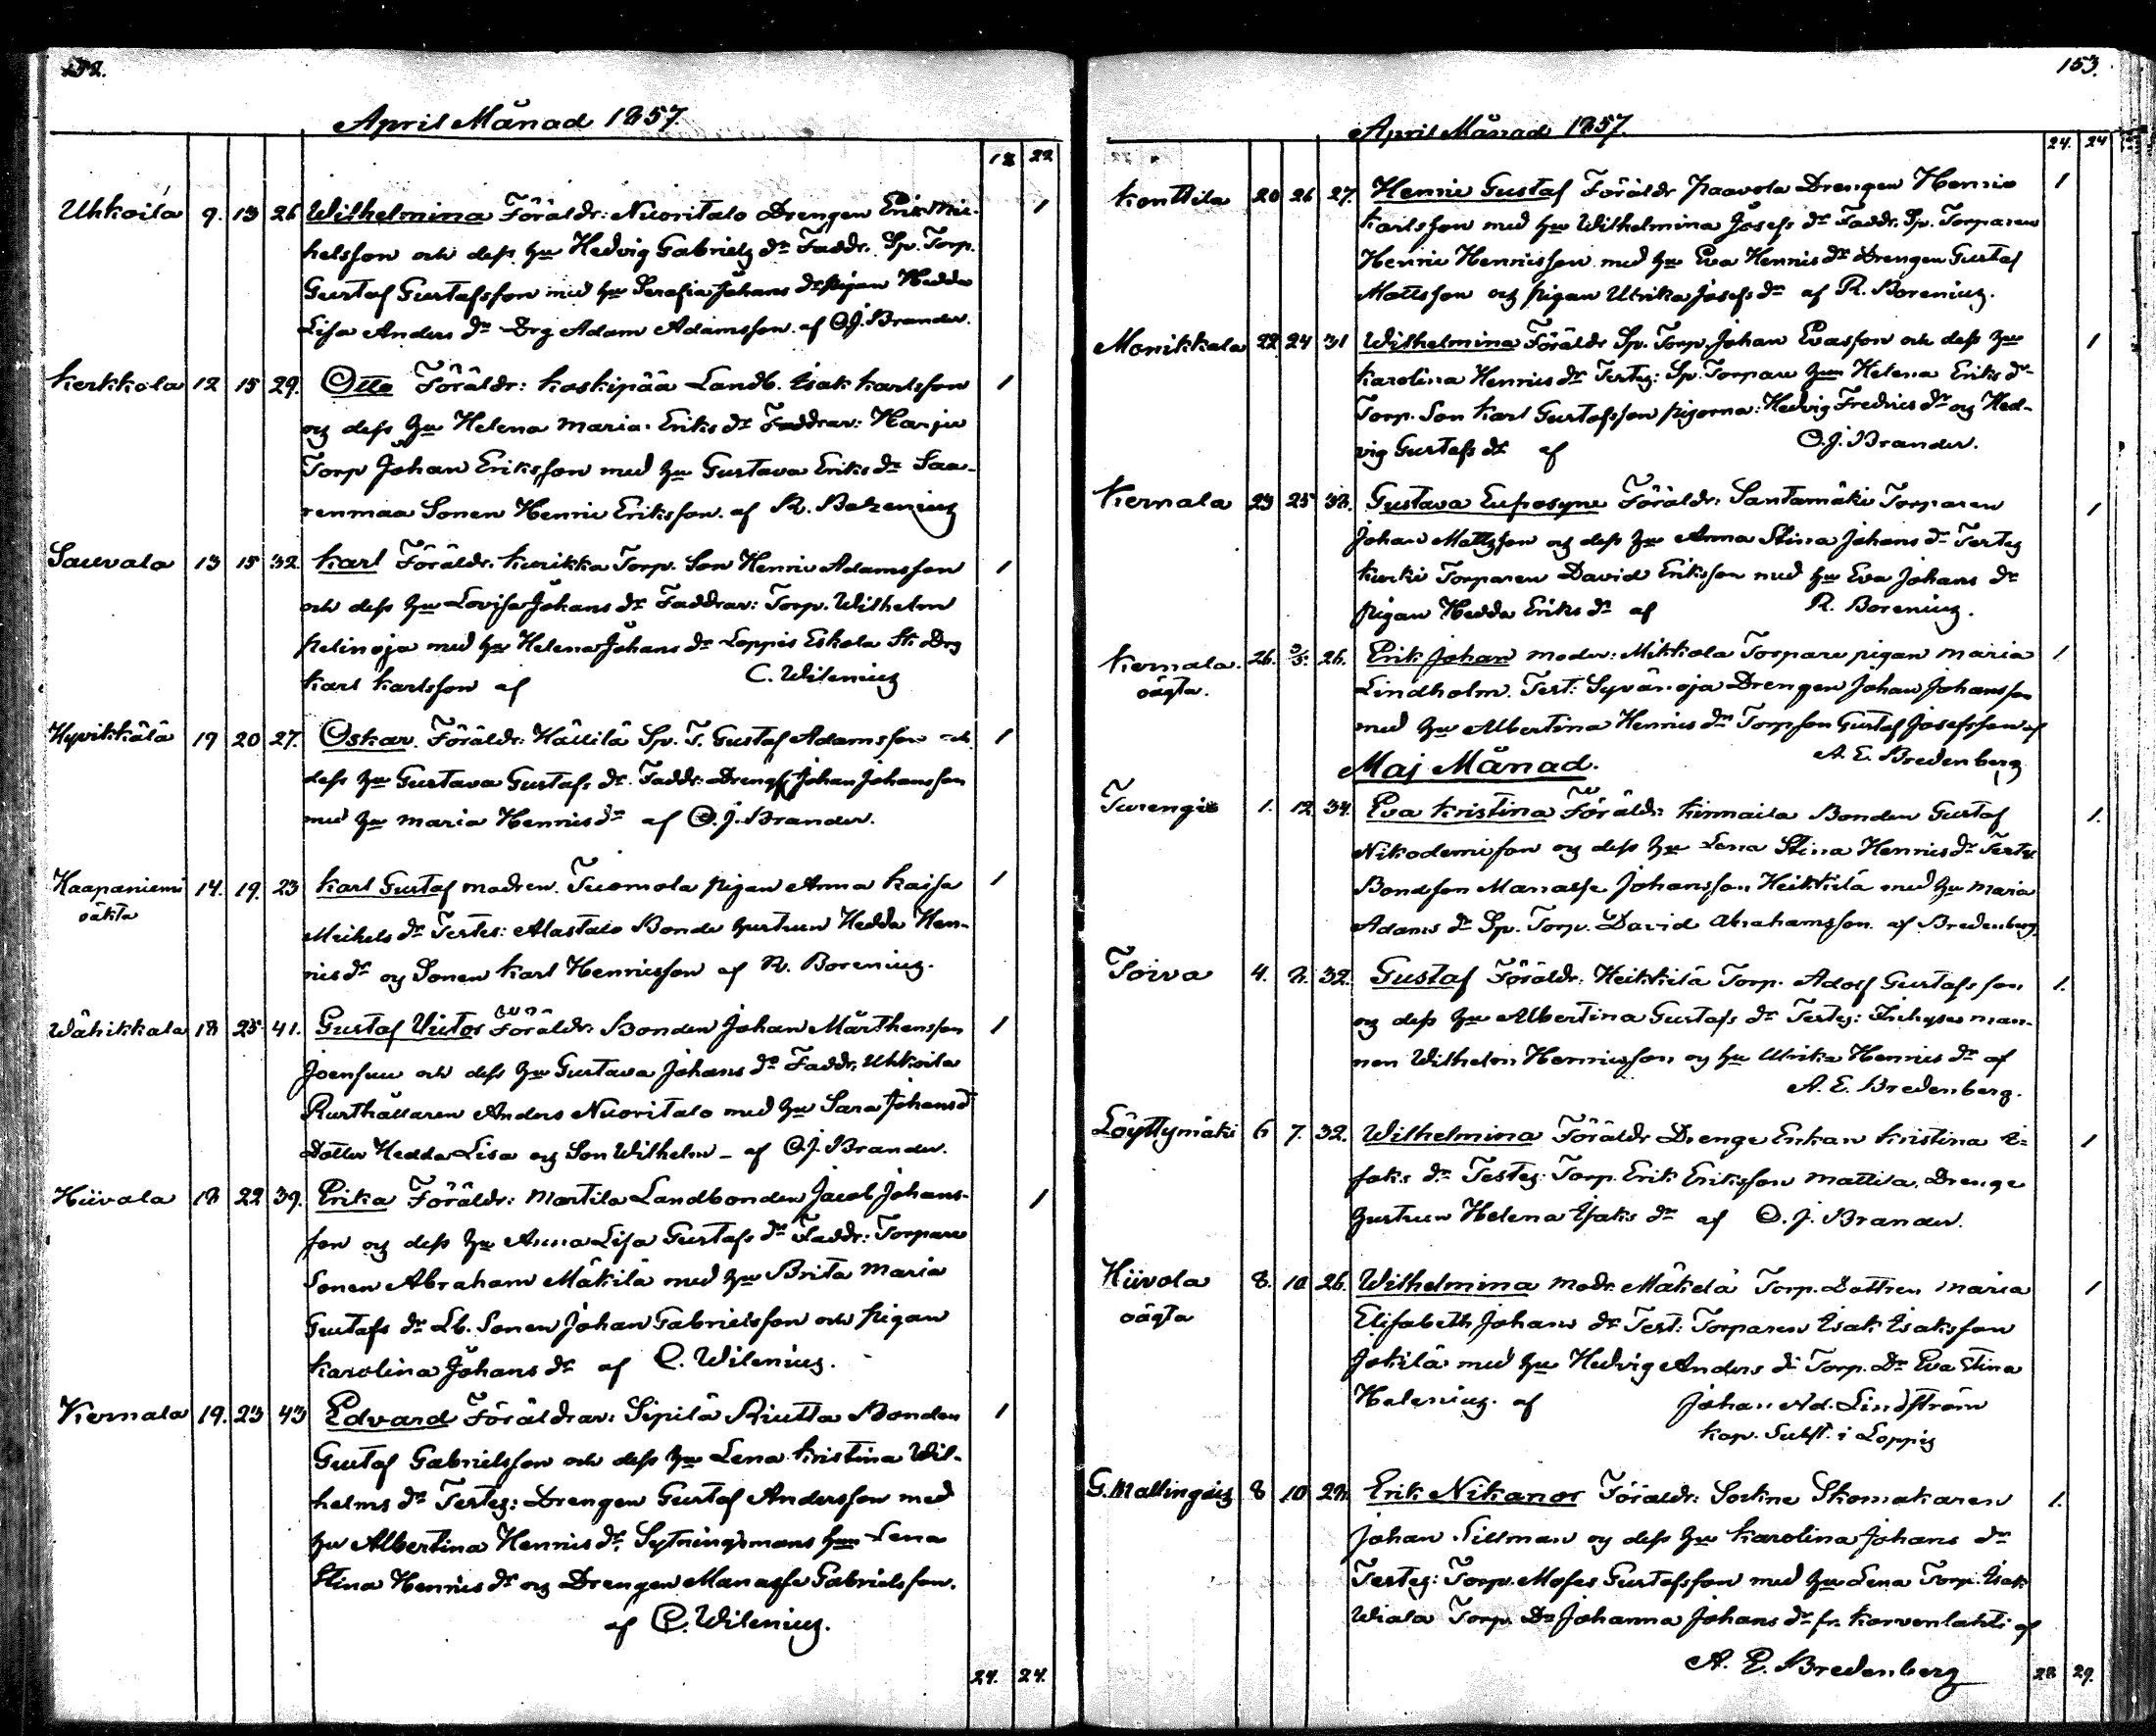 152.
April Månad 1857.
18 22
Uhkoila 9. 13 26 Wilhelmina Föräldr: Nuoritalo Drengen Erik Mic- 1
helsson och dess hu Hedvig Gabriels dr Faddr. Sp. Torp.
Gustaf Gustafsson med hu Serafia Johans dr pigan Hedda
Lisa Anders dr Drg Adam Adamsson. af O.J. Brander.
Kerkkola 12 15 29. Otto Föräldr: Koskipää Landb. Isak Karlsson 1
og dess hu Helena Maria Eriks dr Faddrar: Harju
Torp Johan Eriksson med hu Gustava Eriks dr Saa-
renmaa Sonen Henric Eriksson. af R. Borenius
Sauvala 13 15 32. Karl Föräldr. Kurikka Torp. Son Henric Adamsson 1
och dess hu Lovisa Johans dr Faddrar: Torp. Wilhelm
Pelinoja med hu Helena Johans dr Loppis Eskola St. Drg
Karl Karlsson af C. Wilenius
Hyvikkälä 19 20 27. Oskar. Föräldr: Hällilä Sp. T. Gustaf Adamsson och 1
dess hu Gustava Gustafs dr. Faddr: Drengen Johan Johansson
med hu Maria Henrics dr af O.J. Brander.
Haapaniemi 14. 19. 23 Karl Gustaf modren. Tuomola pigan Anna Kaisa 1
oäkta Michels dr Testes: Alastalo Bonde hustrun Hedda Hen-
rics dr og Sonen Karl Henricsson af R. Borenius.
Wähikkala 18 25 41. Gustaf Victor Föräldr: Bonden Johan Mårthensson 1
Joensuu och dess hu Gustava Johans dr Faddr. Uhkoila
Rusthållaren Anders Nuoritalo med hu Sara Johans dr
Dotter Hedda Lisa og Son Wilhelm - af O.J. Brander.
Hiivola 18 22 39. Erika Föräldr: Martila Landbonden Jacob Johans- 1
son og dess hu Anna Lisa Gustafs dr Faddr: Torpare
Sonen Abraham Mäkilä med hu Brita Maria
Gustafs dr Lb. Sonen Johan Gabrielsson och pigan
Karolina Johans dr af C. Wilenius.
Kernala 19. 23 43 Edvard Föräldrar: Sipilä Riutta Bonden 1
Gustaf Gabrielsson och dess hu Lena Kristina Wil-
helms dr Testes: Drengen Gustaf Andersson med
hu Albertina Henrics dr, Sytningsmans hun Lena
Stina Henrics dr og Drengen Manasse Gabrielsson.
af C. Wilenius.
24. 24.
153.
April Månad 1857.
24. 24
Konttila 20 26 27. Henric Gustaf Föräldr Paavola Drengen Henric 1
Karlsson med hu Wilhelmina Josefs dr Faddr. Sp. Torparen
Henric Henricsson med hu Eva Henrics dr Drengen Gustaf
Mattsson og pigan Ulrika Josefs dr af R. Borenius.
Monikkala 22 24 31 Wilhelmina Föräldr Sp. Torp. Johan Evasson och dess hu 1
Karolina Henrics dr Testes: Sp. Torpare hun Helena Eriks dr
Torp. Son Karl Gustafsson pigorna: Hedvig Fredrics dr og Hed-
vig Gustafs dr af O.J. Brander.
Kernala 23 25 38. Gustava Eufrosyne Föräldr: Santamäki Torparen 1
Johan Mattsson og dess hu Anna Stina Johans dr Testes
Kurki Torparen David Eriksson med hu Eva Johans dr
pigan Hedda Eriks dr af R. Borenius.
Kernala. 26. 3/5. 26. Erik Johan moder: Mikkola Torpare pigan Maria 1.
oägta. Lindholm. Test: Syvänoja Drengen Johan Johansson
med hu Albertina Henrics dr Torpson Gustaf Josefsson af
A. E. Bredenberg
Maj Månad.
Turengi 1. 12 34. Eva Kristina Föräldr: Kinnaila Bonden Gustaf 1.
Nikodemisson og dess hu Lena Stina Henrics dr Testes
Bondson Manasse Johansson Heikkilä med hu Maria
Adams dr Sp. Torp. David Abrahamsson. af Bredenberg.
Toiva 4. 8. 32. Gustaf Föräldr: Heikkilä Torp. Adolf Gustafsson 1.
og dess hu Albertina Gustafs dr Testes: Inhyses man-
nen Wilhelm Henricsson og hu Ulrika Henrics dr af
A. E. Bredenberg.
Löyttymäki 6 7. 32. Wilhelmina Föräldr Drenge Enkan Kristina I- 1
saks dr Testes: Torp. Erik Eriksson Mattila, Drenge
hustrun Helena Isaks dr af O.J. Brander.
Hiivola 8. 10 26. Wilhelmina Modr. Mäkelä Torp. Dottren Maria 1
oägta Elisabeth Johans dr Test: Torparen Isak Isaksson
Jokilä med hu Hedvig Anders dr Torp. Dr Eva Stina
Helenius. af Johan Ad. Lindström
Kap. Subst. i Loppis
G. Mallinges 8 10 28. Erik Nikanor Föräldr: Sortine Skomakaren 1.
Johan Sillman og dess hu Karolina Johans dr
Testes: Torp. Moses Gustafsson med hu Lena Torp: Isak
Wiala Torp. Dr Johanna Johans dr fr. Korvenlahti af
A. E. Bredenberg
28 29.